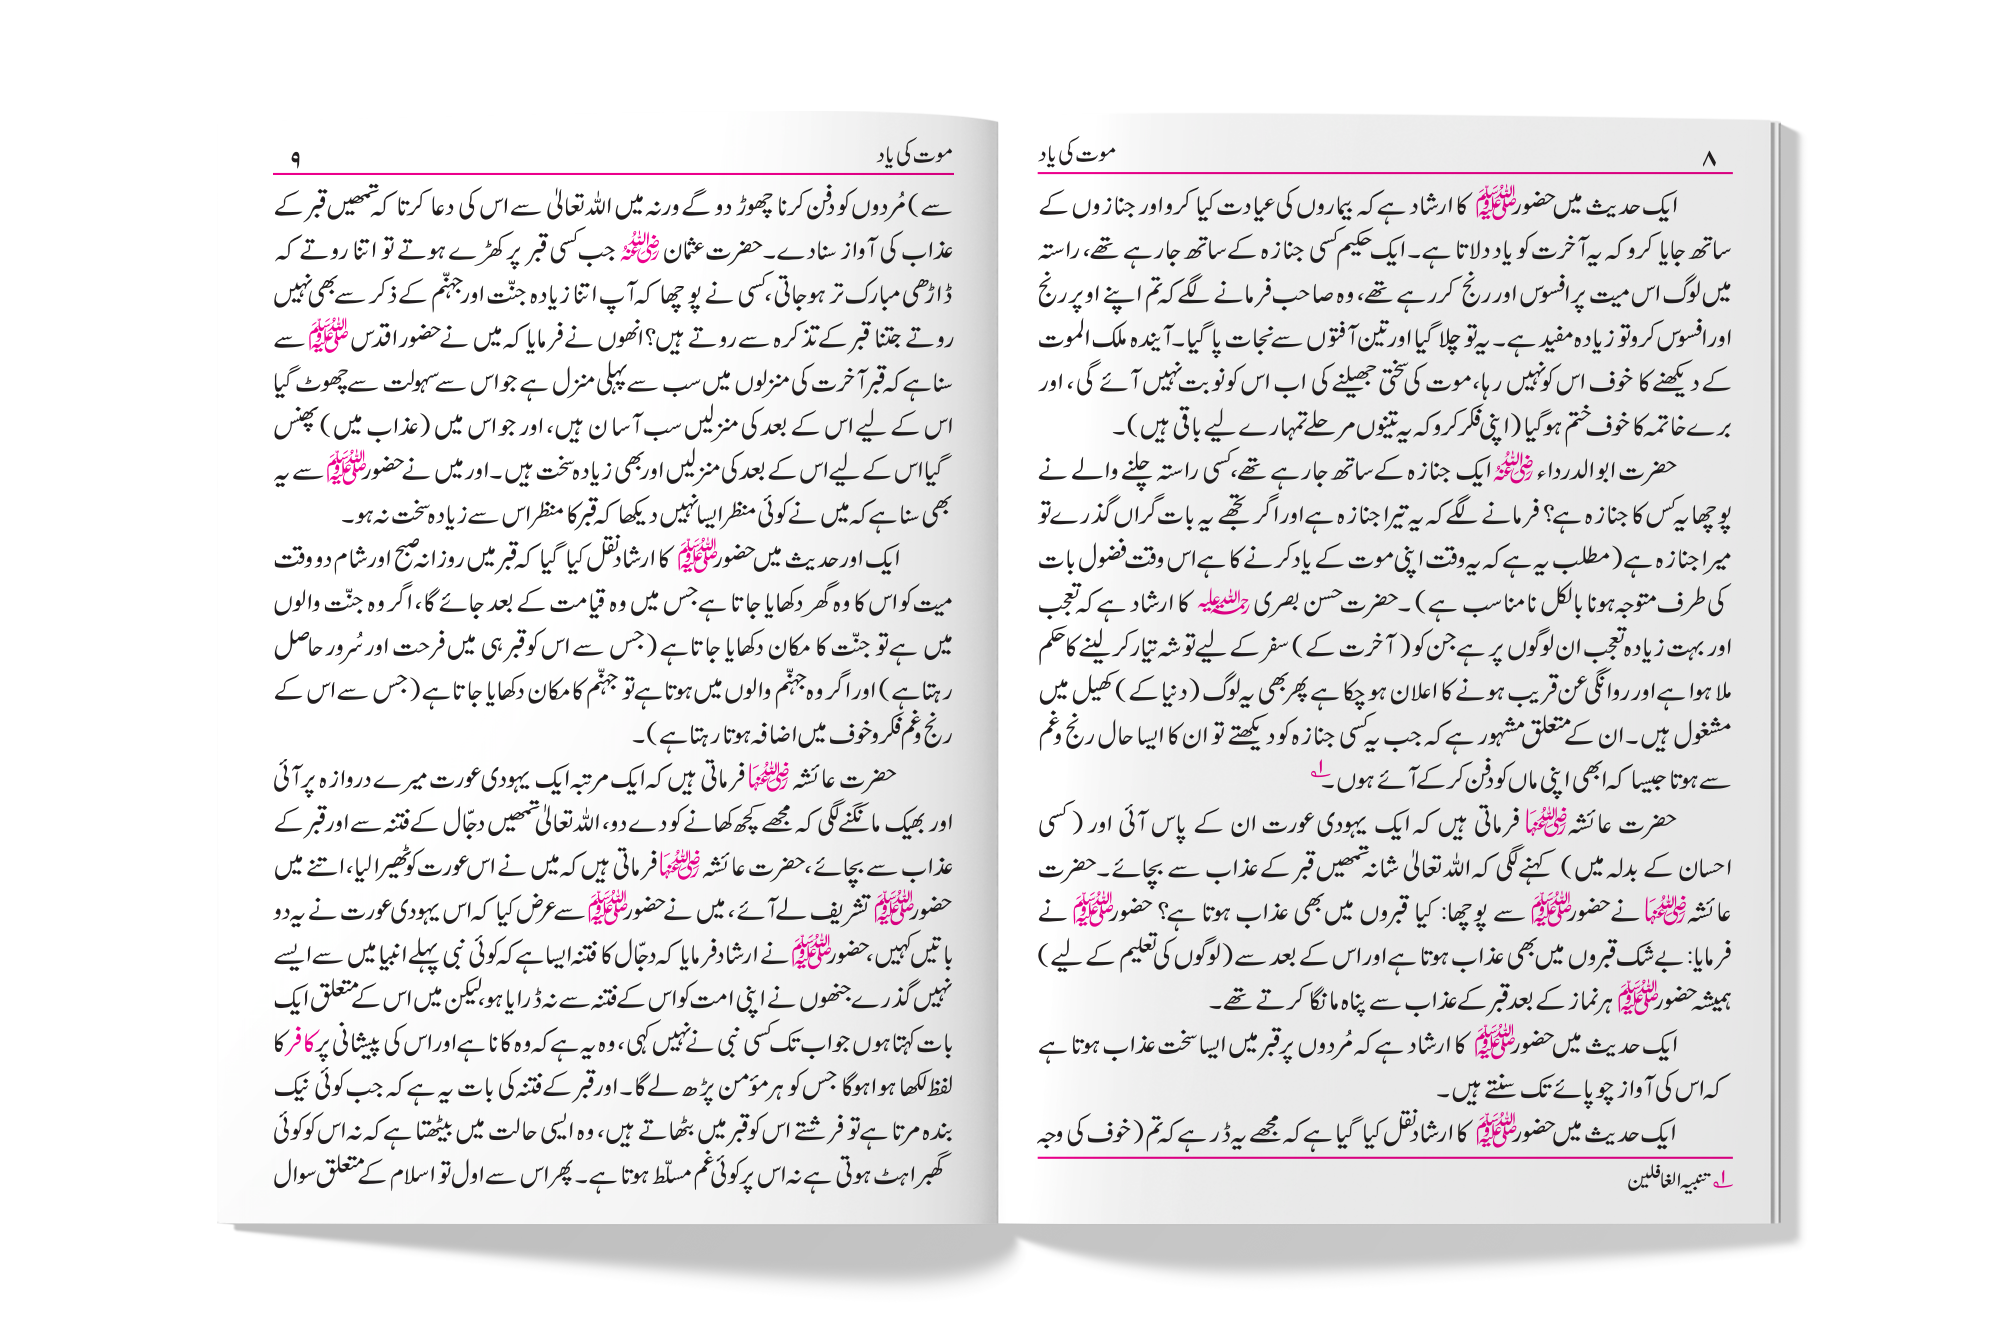 ۸ موت کی یاد
ایک حدیث میں حضور ﷺ کا ارشاد ہے کہ بیماروں کی عیادت کیا کرو اور جنازوں کے
ساتھ جایا کرو کہ یہ آخرت کو یاد دلاتا ہے۔ ایک حکیم کسی جنازہ کے ساتھ جارہے تھے، راستہ
میں لوگ اس میت پر افسوس اور رنج کر رہے تھے، وہ صاحب فرمانے لگے کہ تم اپنے اوپر رنج
اور افسوس کرو تو زیادہ مفید ہے۔ یہ تو چلا گیا اور تین آفتوں سے نجات پا گیا۔ آیندہ ملک الموت
کے دیکھنے کا خوف اس کو نہیں رہا، موت کی سختی جھیلنے کی اب اس کو نوبت نہیں آئے گی، اور
برے خاتمہ کا خوف ختم ہوگیا (اپنی فکر کرو کہ یہ تینوں مرحلے تمہارے لیے باقی ہیں)۔
حضرت ابوالدرداء رضی اللہ عنہ ایک جنازہ کے ساتھ جارہے تھے، کسی راستہ چلنے والے نے
پوچھا یہ کس کا جنازہ ہے؟ فرمانے لگے کہ یہ تیرا جنازہ ہے اور اگر تجھے یہ بات گراں گذرے تو
میرا جنازہ ہے (مطلب یہ ہے کہ یہ وقت اپنی موت کے یاد کرنے کا ہے اس وقت فضول بات
کی طرف متوجہ ہونا بالکل نامناسب ہے)۔ حضرت حسن بصری رحمۃ اللہ علیہ کا ارشاد ہے کہ تعجب
اور بہت زیادہ تعجب ان لوگوں پر ہے جن کو (آخرت کے) سفر کے لیے توشہ تیار کر لینے کا حکم
ملا ہوا ہے اور روانگی عن قریب ہونے کا اعلان ہو چکا ہے پھر بھی یہ لوگ (دنیا کے) کھیل میں
مشغول ہیں۔ ان کے متعلق مشہور ہے کہ جب یہ کسی جنازہ کو دیکھتے تو ان کا ایسا حال رنج و غم
سے ہوتا جیسا کہ ابھی اپنی ماں کو دفن کرکے آئے ہوں۔ ۱؎
حضرت عائشہ رضی اللہ عنہا فرماتی ہیں کہ ایک یہودی عورت ان کے پاس آئی اور (کسی
احسان کے بدلہ میں) کہنے لگی کہ اللہ تعالیٰ شانہ تمھیں قبر کے عذاب سے بچائے۔ حضرت
عائشہ رضی اللہ عنہا نے حضور ﷺ سے پوچھا: کیا قبروں میں بھی عذاب ہوتا ہے؟ حضور ﷺ نے
فرمایا: بے شک قبروں میں بھی عذاب ہوتا ہے اور اس کے بعد سے (لوگوں کی تعلیم کے لیے)
ہمیشہ حضور ﷺ ہر نماز کے بعد قبر کے عذاب سے پناہ مانگا کرتے تھے۔
ایک حدیث میں حضور ﷺ کا ارشاد ہے کہ مُردوں پر قبر میں ایسا سخت عذاب ہوتا ہے
کہ اس کی آواز چوپائے تک سنتے ہیں۔
ایک حدیث میں حضور ﷺ کا ارشاد نقل کیا گیا ہے کہ مجھے یہ ڈر ہے کہ تم (خوف کی وجہ
۱؎ تنبیہ الغافلین
موت کی یاد ۹
سے) مُردوں کو دفن کرنا چھوڑ دو گے ورنہ میں اللہ تعالیٰ سے اس کی دعا کرتا کہ تمھیں قبر کے
عذاب کی آواز سنادے۔ حضرت عثمان رضی اللہ عنہ جب کسی قبر پر کھڑے ہوتے تو اتنا روتے کہ
ڈاڑھی مبارک تر ہوجاتی، کسی نے پوچھا کہ آپ اتنا زیادہ جنّت اور جہنّم کے ذکر سے بھی نہیں
روتے جتنا قبر کے تذکرہ سے روتے ہیں؟ انھوں نے فرمایا کہ میں نے حضور اقدس ﷺ سے
سنا ہے کہ قبر آخرت کی منزلوں میں سب سے پہلی منزل ہے جو اس سے سہولت سے چھوٹ گیا
اس کے لیے اس کے بعد کی منزلیں سب آسان ہیں، اور جو اس میں (عذاب میں) پھنس
گیا اس کے لیے اس کے بعد کی منزلیں اور بھی زیادہ سخت ہیں۔ اور میں نے حضور ﷺ سے یہ
بھی سنا ہے کہ میں نے کوئی منظر ایسا نہیں دیکھا کہ قبر کا منظر اس سے زیادہ سخت نہ ہو۔
ایک اور حدیث میں حضور ﷺ کا ارشاد نقل کیا گیا کہ قبر میں روزانہ صبح اور شام دو وقت
میت کو اس کا وہ گھر دکھایا جاتا ہے جس میں وہ قیامت کے بعد جائے گا، اگر وہ جنّت والوں
میں ہے تو جنّت کا مکان دکھایا جاتا ہے (جس سے اس کو قبر ہی میں فرحت اور سُرور حاصل
رہتا ہے) اور اگر وہ جہنّم والوں میں ہوتا ہے تو جہنّم کا مکان دکھایا جاتا ہے (جس سے اس کے
رنج و غم فکر و خوف میں اضافہ ہوتا رہتا ہے)۔
حضرت عائشہ رضی اللہ عنہا فرماتی ہیں کہ ایک مرتبہ ایک یہودی عورت میرے دروازہ پر آئی
اور بھیک مانگنے لگی کہ مجھے کچھ کھانے کو دے دو، اللہ تعالیٰ تمھیں دجّال کے فتنہ سے اور قبر کے
عذاب سے بچائے، حضرت عائشہ رضی اللہ عنہا فرماتی ہیں کہ میں نے اس عورت کو ٹھیرا لیا، اتنے میں
حضور ﷺ تشریف لے آئے، میں نے حضور ﷺ سے عرض کیا کہ اس یہودی عورت نے یہ دو
باتیں کہیں، حضور ﷺ نے ارشاد فرمایا کہ دجّال کا فتنہ ایسا ہے کہ کوئی نبی پہلے انبیا میں سے ایسے
نہیں گذرے جنھوں نے اپنی امت کو اس کے فتنہ سے نہ ڈرایا ہو، لیکن میں اس کے متعلق ایک
بات کہتا ہوں جو اب تک کسی نبی نے نہیں کہی، وہ یہ ہے کہ وہ کانا ہے اور اس کی پیشانی پر کافر کا
لفظ لکھا ہوا ہوگا جس کو ہر مؤمن پڑھ لے گا۔ اور قبر کے فتنہ کی بات یہ ہے کہ جب کوئی نیک
بندہ مرتا ہے تو فرشتے اس کو قبر میں بٹھاتے ہیں، وہ ایسی حالت میں بیٹھتا ہے کہ نہ اس کو کوئی
گھبراہٹ ہوتی ہے نہ اس پر کوئی غم مسلّط ہوتا ہے۔ پھر اس سے اول تو اسلام کے متعلق سوال